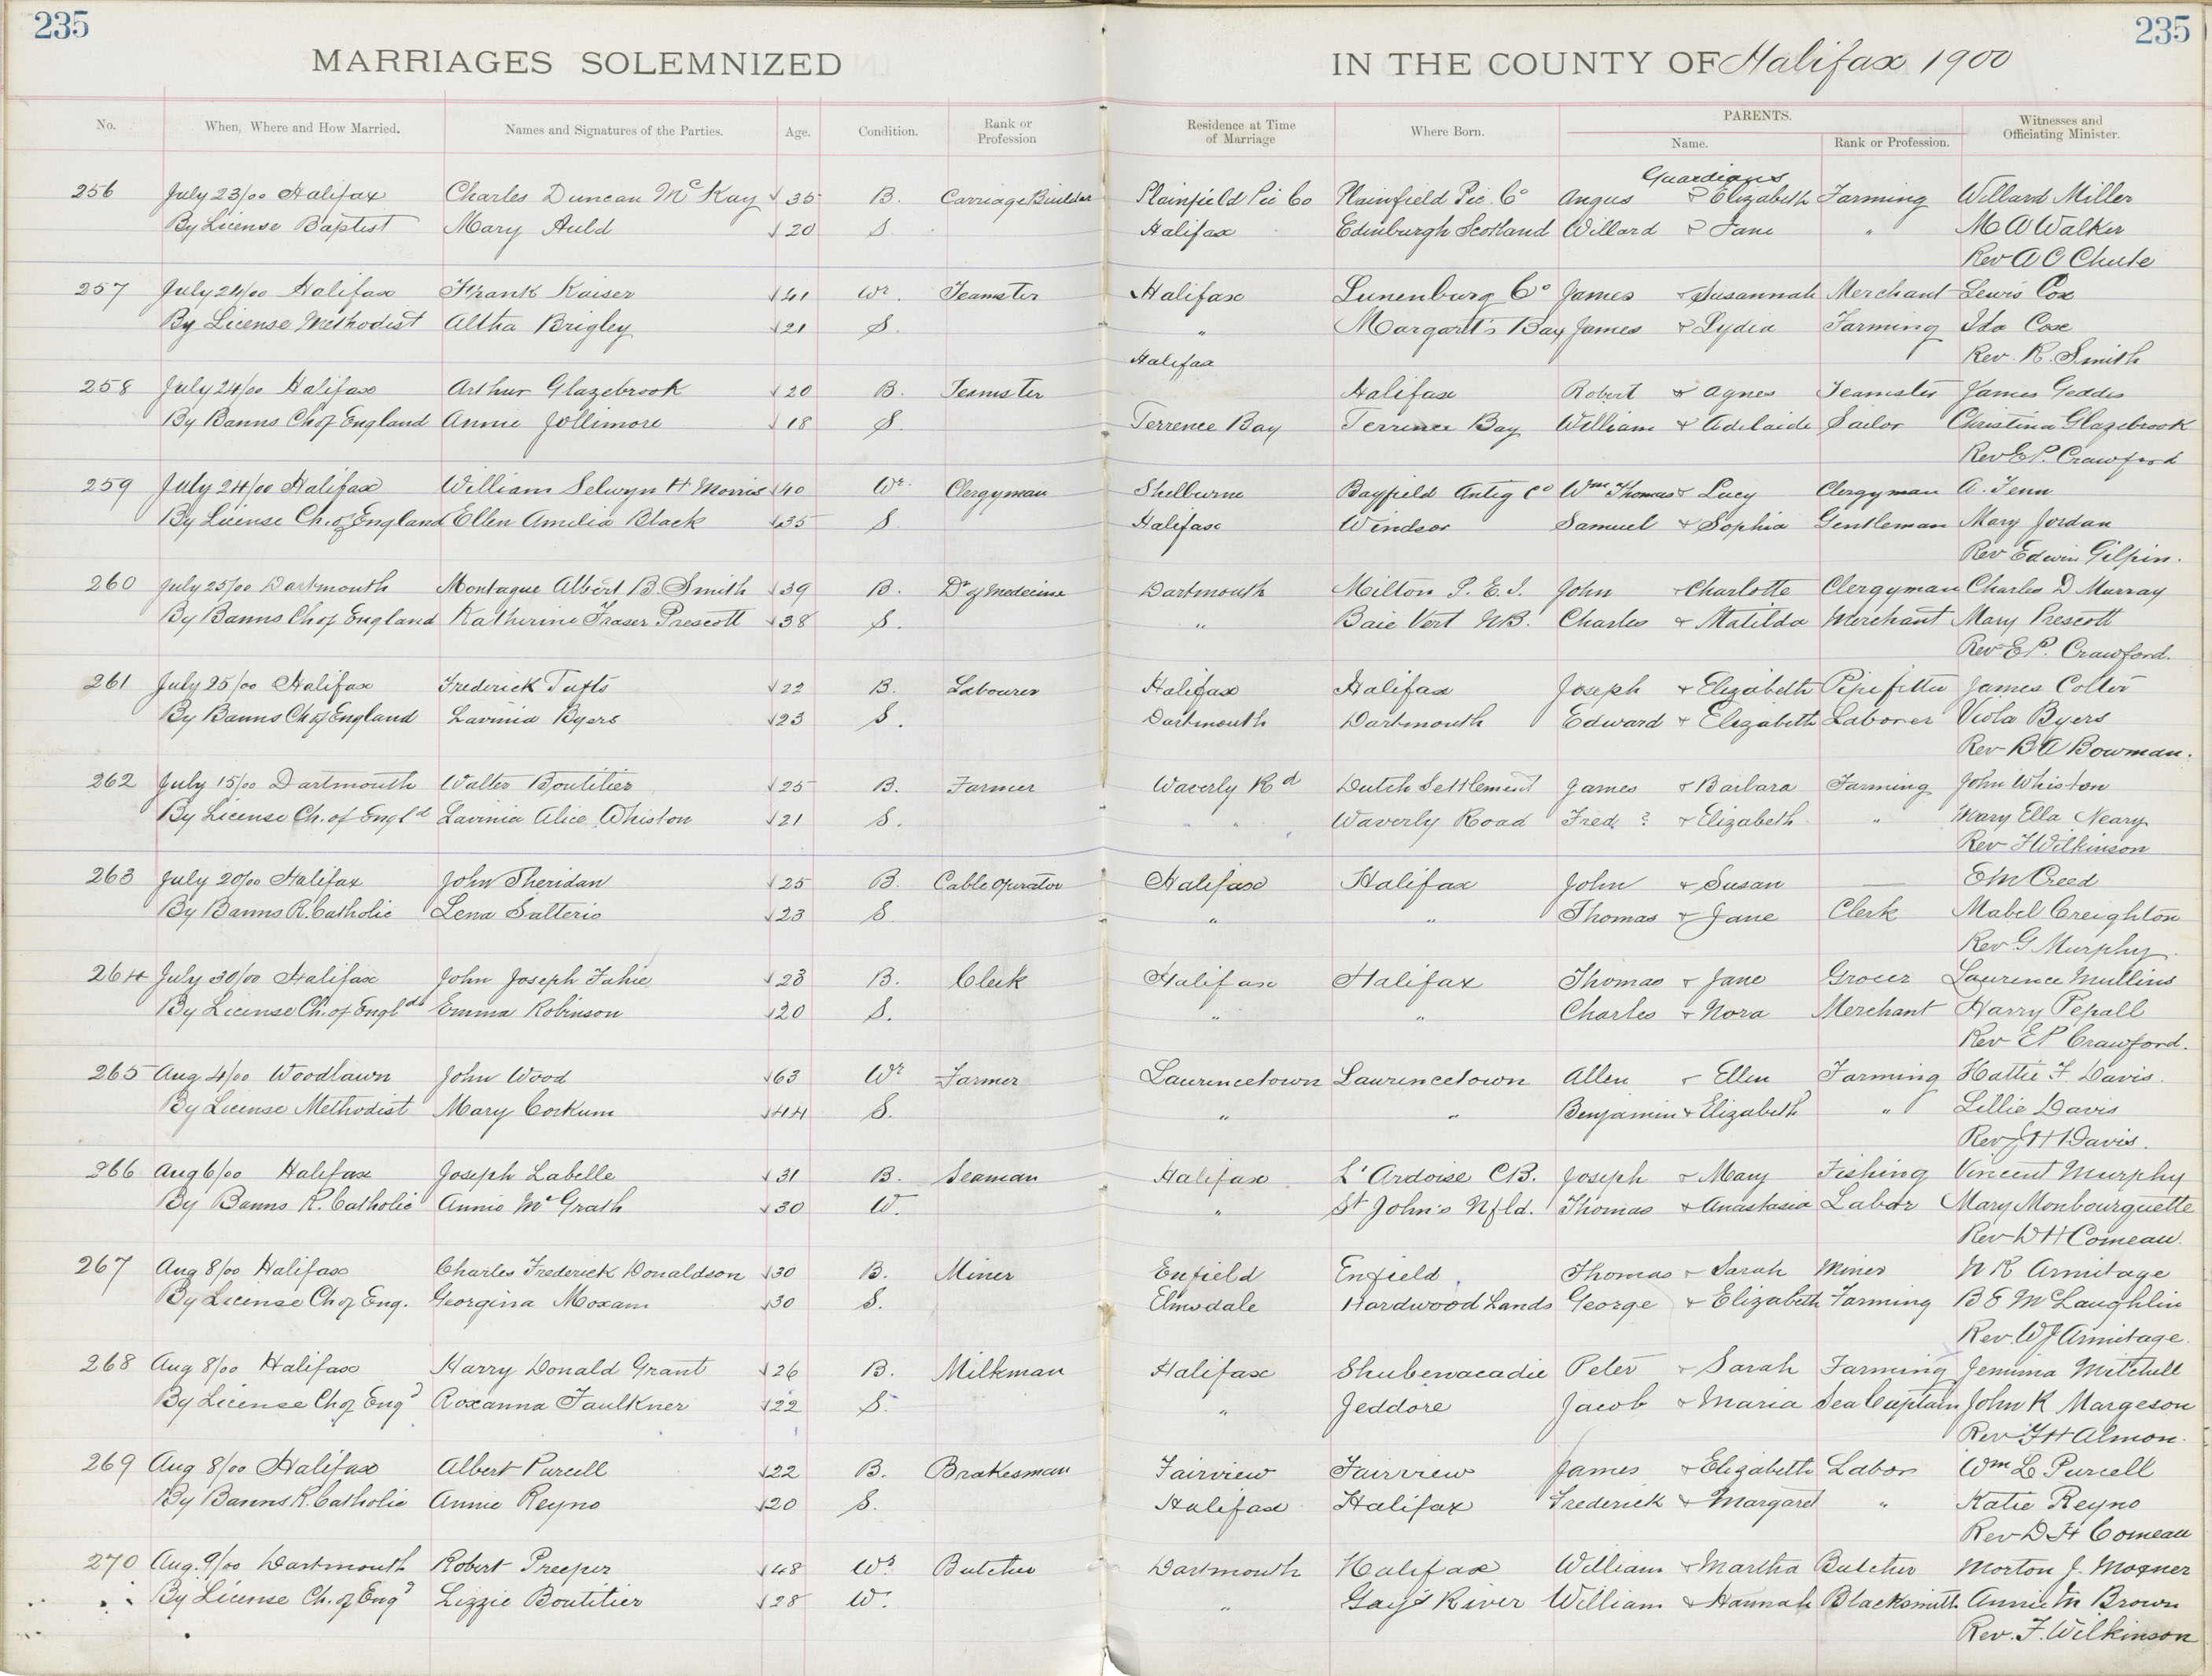 235
235
MARRIAGES SOLEMNIZED
IN THE COUNTY OF Halifax 1900
No. When, Where and How Married. Names and Signatures of the Parties. Age. Condition. Rank or Profession Residence at Time of Marriage Where Born. PARENTS. Name. Rank or Profession. Witnesses and Officiating Minister.
Guardians
256 July 23/00 Halifax Charles Duncan McKay 35 B. Carriage Builder Plainfield Pic Co Plainfield Pic. Co Angus & Elizabeth Farming Willard Miller
By License Baptist Mary Auld 20 S Halifax Edinburgh Scotland Willard & Jane " M A Walker
Rev A C Chute
257 July 24/00 Halifax Frank Kaiser 41 Wr. Teamster Halifax Lunenburg Co James & Susannah Merchant Lewis Cox
By License Methodist Altha Brigley 21 S. " Margaret's Bay James & Lydia Farming Ida Cox
Rev. R. Smith
Halifax
258 July 24/00 Halifax Arthur Glazebrook 20 B. Teamster Halifax Robert & Agnes Teamster James Geddes
By Banns Ch of England Annie Jollimore 18 S. Terrence Bay Terrence Bay William & Adelaide Sailor Christina Glazebrook
Rev E P. Crawford
259 July 24/00 Halifax William Selwyn H Morris 40 Wr. Clergyman Shelburne Bayfield Antig Co Wm Thomas & Lucy Clergyman A. Fenn
By License Ch. of England Ellen Amelia Black 35 S. Halifax Windsor Samuel & Sophia Gentleman Mary Jordan
Rev Edwin Gilpin.
260 July 25/00 Dartmouth Montague Albert B Smith 39 B. Dr of Medecine Dartmouth Milton P. E. I. John & Charlotte Clergyman Charles D Murray
By Banns Ch of England Katherine Fraser Prescott 38 S. " Baie Vert NB. Charles & Matilda Merchant Mary Prescott
Rev E P. Crawford.
261 July 25/00 Halifax Frederick Tufts 22 B. Labourer Halifax Halifax Joseph & Elizabeth Pipefitter James Colter
By Banns Ch of England Lavinia Byers 23 S. Dartmouth Dartmouth Edward & Elizabeth Laborer Viola Byers
Rev B A Bowman.
262 July 15/00 Dartmouth Walter Boutilier 25 B. Farmer Waverly Rd Dutch Settlement James & Barbara Farming John Whiston
By License Ch. of Engld Lavinia Alice Whiston 21 S. " Waverly Road Fred ? & Elizabeth " Mary Ella Neary
Rev F Wilkinson
263 July 20/00 Halifax John Sheridan 25 B. Cable operator Halifax Halifax John & Susan — E M Creed
By Banns R. Catholic Lena Salterio 23 S " " Thomas & Jane Clerk Mabel Creighton
Rev G Murphy.
264 July 30/00 Halifax John Joseph Fahie 23 B. Clerk Halifax Halifax Thomas & Jane Grocer Laurence Mullins
By License Ch. of Engld Emma Robinson 20 S. " " Charles & Nora Merchant Harry Pepall
Rev E P Crawford.
265 Aug 4/00 Woodlawn John Wood 63 Wr Farmer Laurencetown Laurencetown Allen & Ellen Farming Hattie F. Davis.
By License Methodist Mary Corkum 44 S. " " Benjamin & Elizabeth " Lillie Davis
Rev J H Davis.
266 Aug 6/00 Halifax Joseph Labelle 31 B. Seaman Halifax L'Ardoise CB. Joseph & Mary Fishing Vincent Murphy
By Banns R. Catholic Annie McGrath 30 W. " St John's Nfld. Thomas & Anastasia Labor Mary Monbourquette
Rev D H Comeau.
267 Aug 8/00 Halifax Charles Frederick Donaldson 30 B. Miner Enfield Enfield Thomas & Sarah Miner W R Armitage
By License Ch of Eng. Georgina Moxam 30 S. Elmsdale Hardwood Lands George & Elizabeth Farming B E McLaughlin
Rev. W J Armitage.
268 Aug 8/00 Halifax Harry Donald Grant 26 B. Milkman Halifax Shubenacadie Peter & Sarah Farming Jemima Mitchell
By License Ch of Engd Roxanna Faulkner 22 S. " Jeddore Jacob & Maria Sea Captain John K Margeson
Rev F H Almon.
269 Aug 8/00 Halifax Albert Purcell 22 B. Brakesman Fairview Fairview James & Elizabeth Labor Wm L Purcell
By Banns R. Catholic Annie Reyno 20 S. Halifax Halifax Frederick & Margaret " Katie Reyno
Rev D H Comeau
270 Aug. 9/00 Dartmouth Robert Preeper 48 Wr Butcher Dartmouth Halifax William & Martha Butcher Morton J. Mosher
By License Ch. of Engd Lizzie Boutilier 28 W. " Gay's River William & Hannah Blacksmith Annie M Brown
Rev. F. Wilkinson